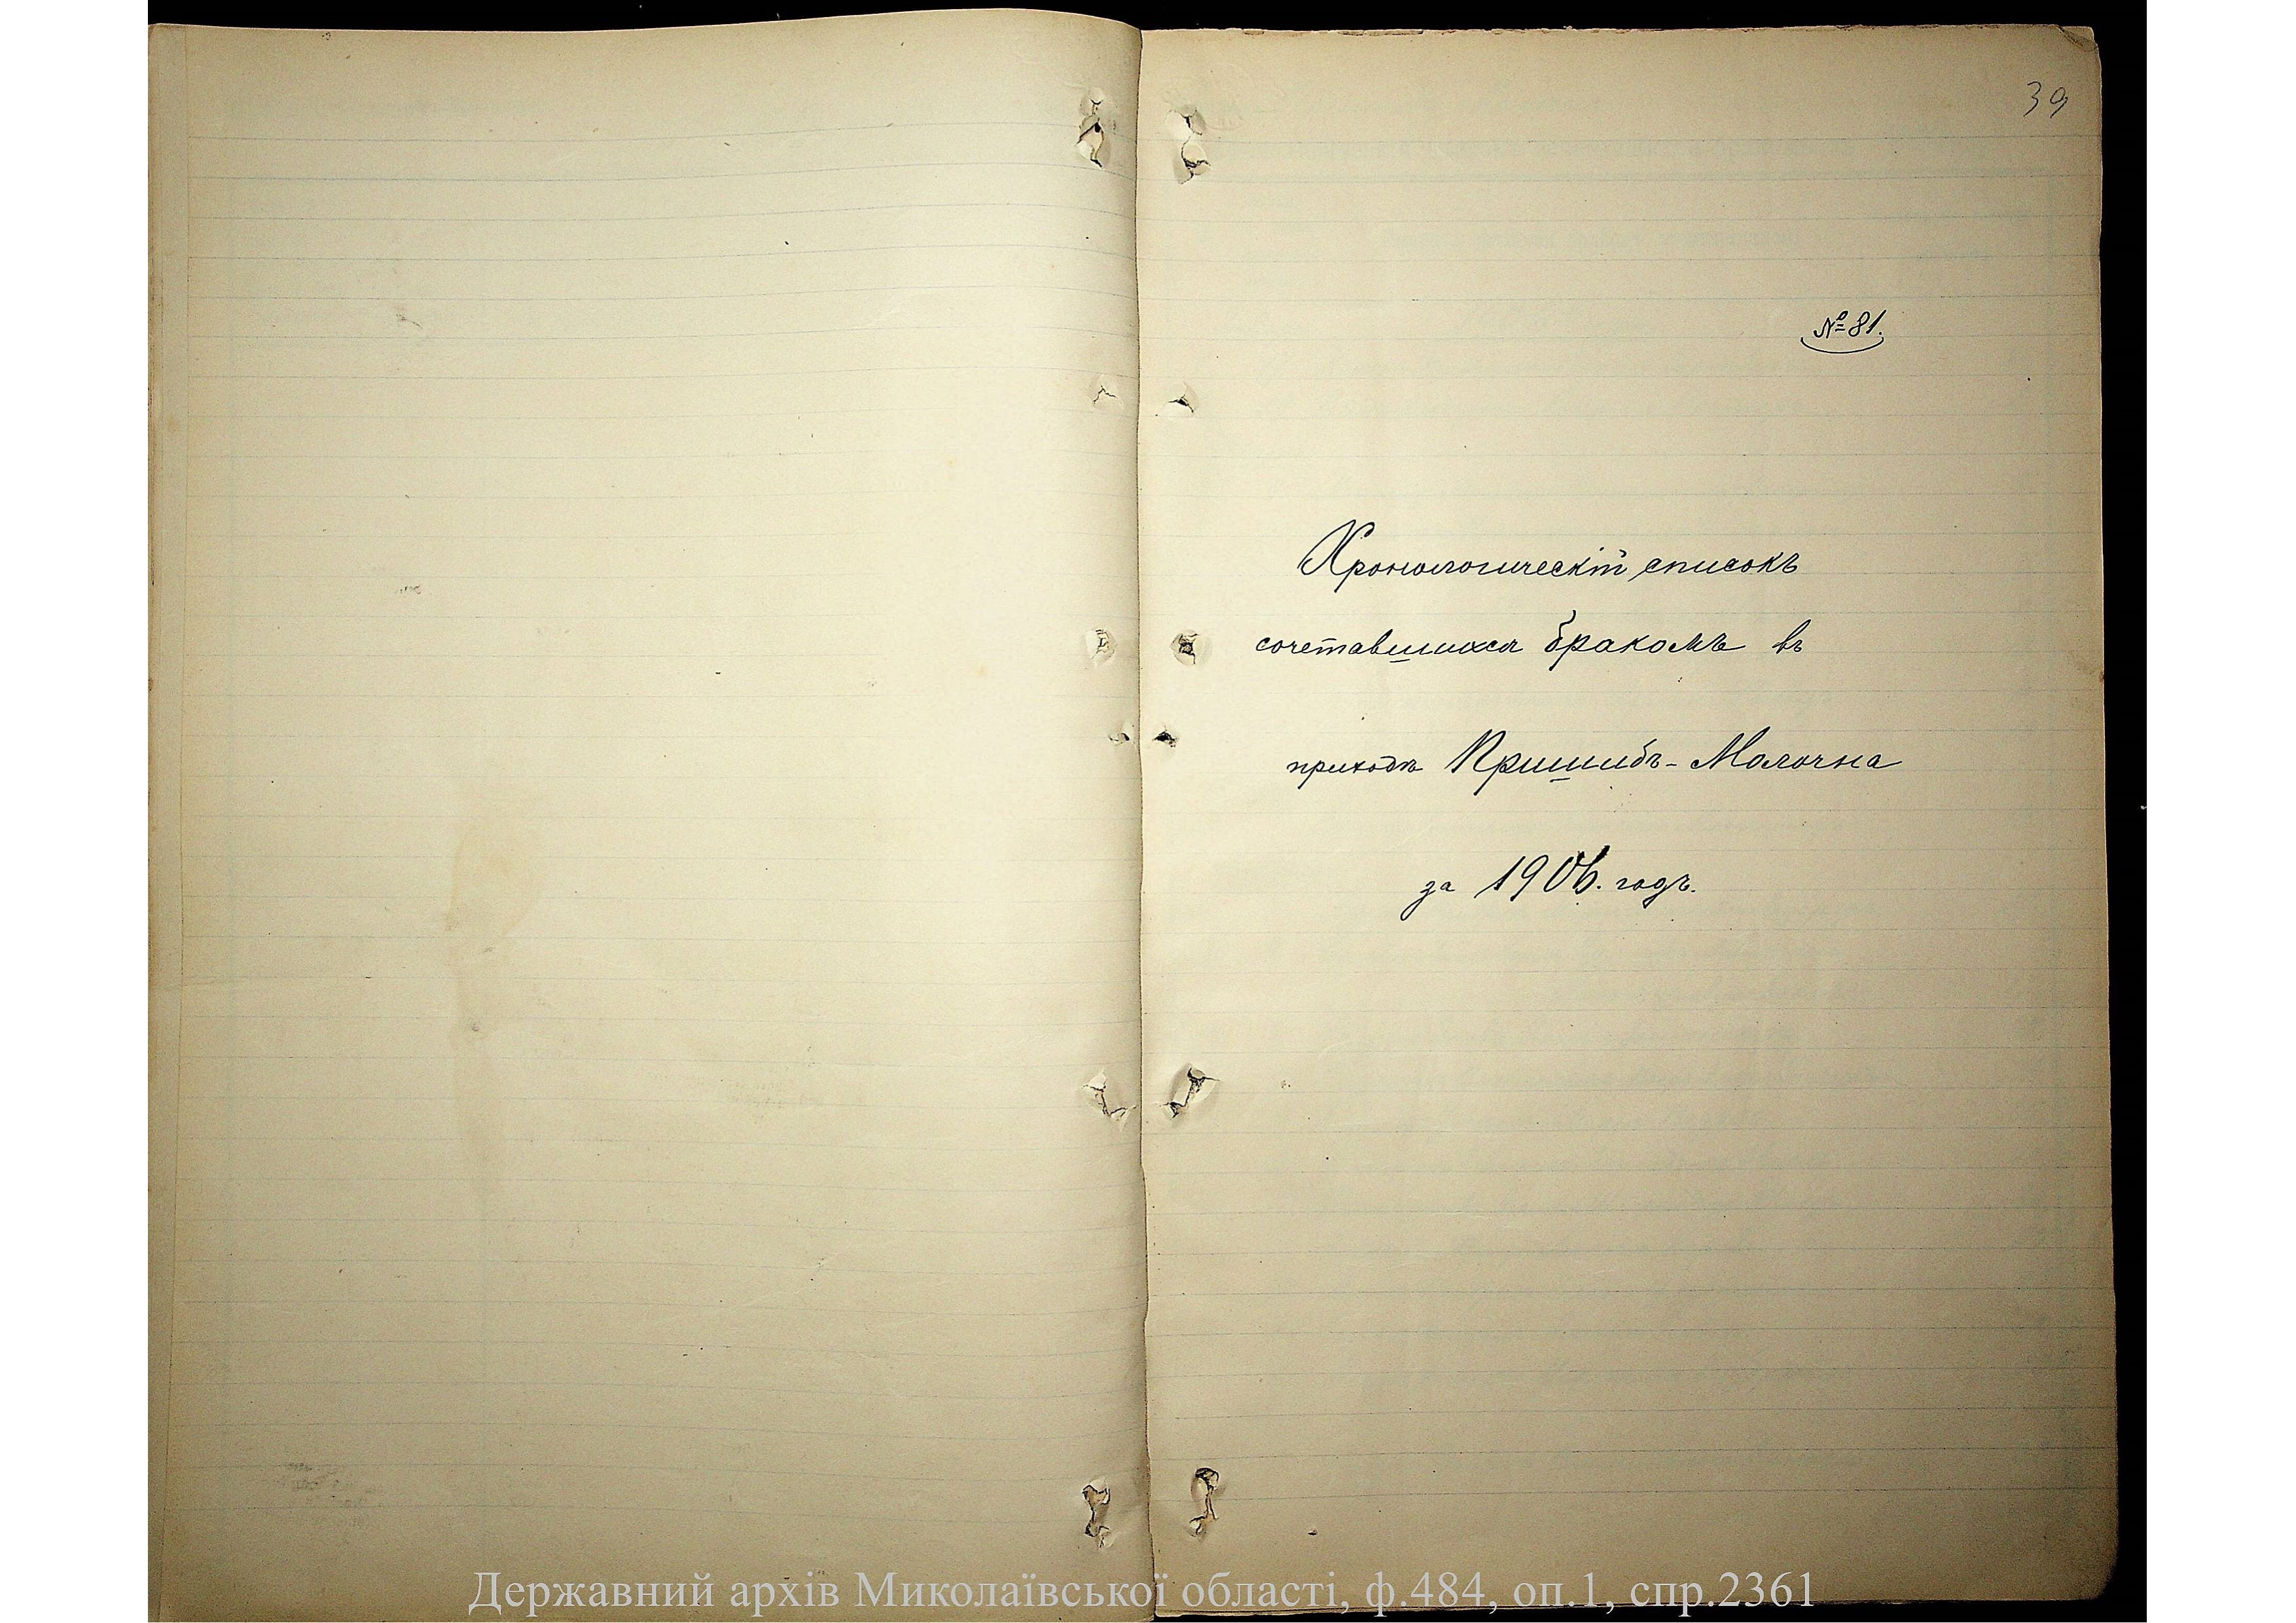 39
№ 81.
Хронологическій списокъ
сочетавшихся бракомъ въ
приходѣ Пришибъ-Молочна
за 1906. годъ.
Державний архів Миколаївської області, ф.484, оп.1, спр.2361